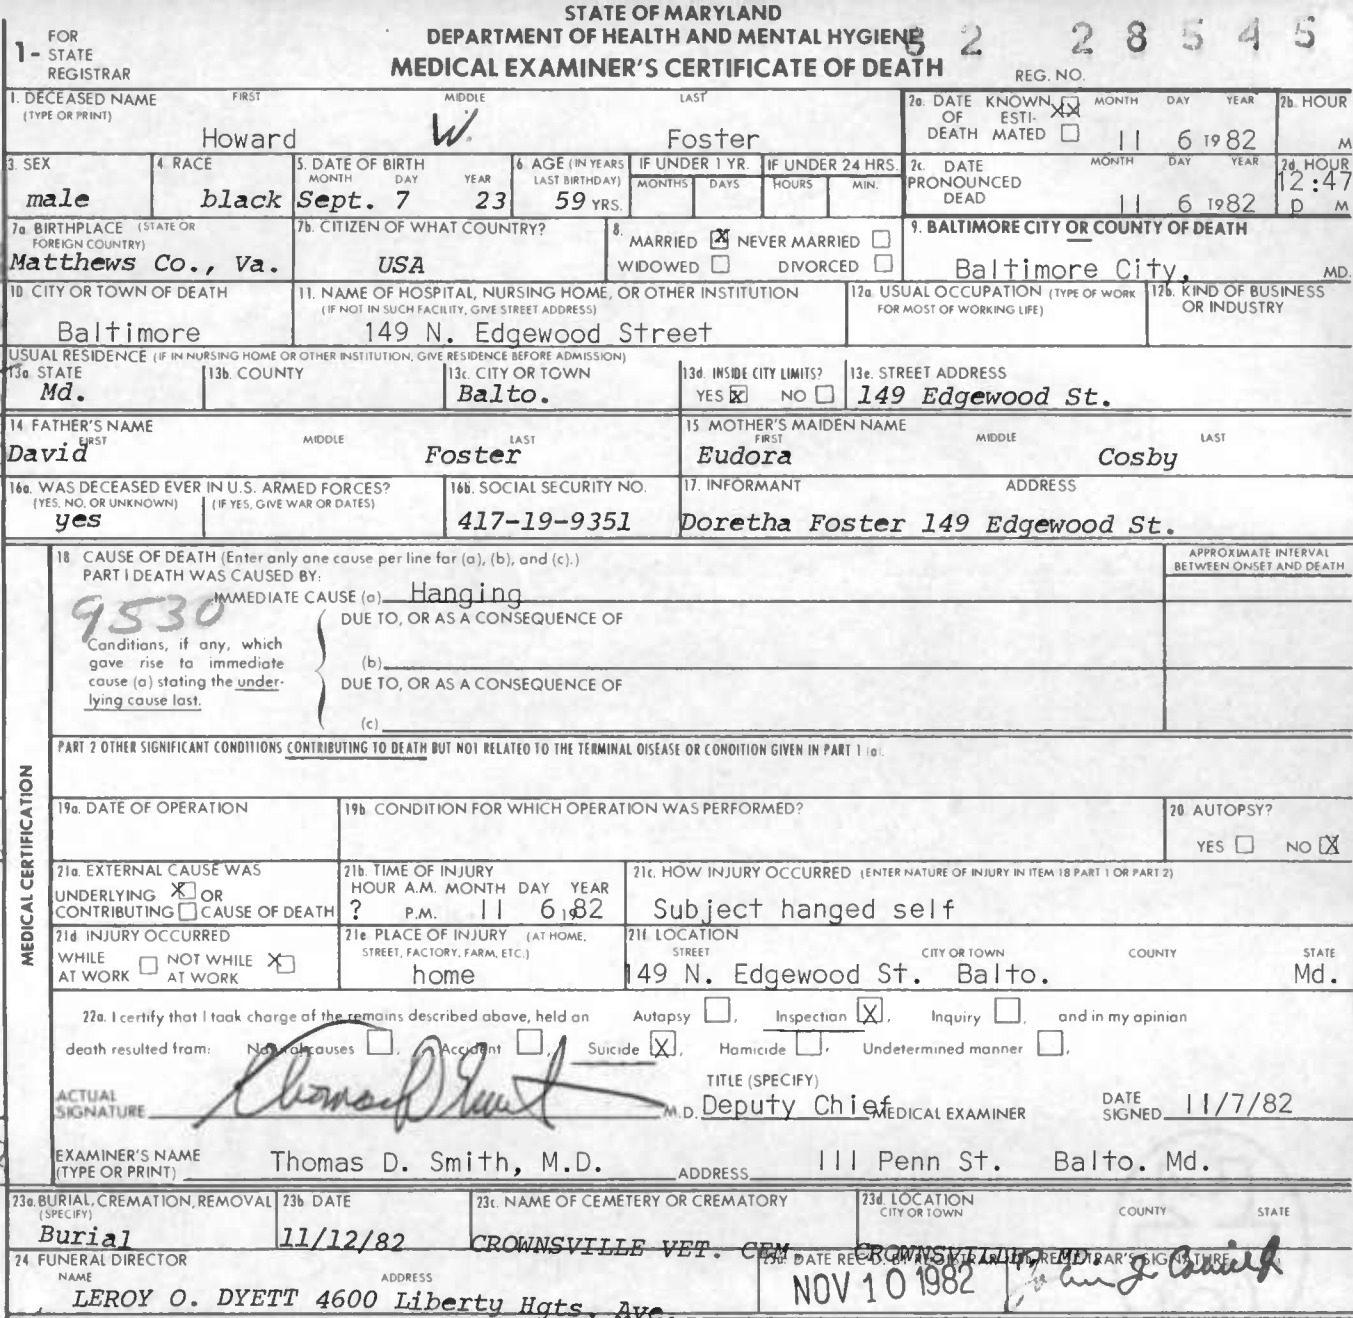 STATE OF MARYLAND
DEPARTMENT OF HEALTH AND MENTAL HYGIENE
MEDICAL EXAMINER'S CERTIFICATE OF DEATH
1- FOR STATE REGISTRAR
82 28545
REG. NO.
1. DECEASED NAME (TYPE OR PRINT) FIRST MIDDLE LAST
Howard W. Foster
2a. DATE OF DEATH KNOWN XX ESTIMATED MONTH DAY YEAR
11 6 1982
2b. HOUR
M
3. SEX
male
4. RACE
black
5. DATE OF BIRTH MONTH DAY YEAR
Sept. 7 23
6. AGE (IN YEARS LAST BIRTHDAY)
59 YRS.
IF UNDER 1 YR. MONTHS DAYS
IF UNDER 24 HRS. HOURS MIN.
2c. DATE PRONOUNCED DEAD MONTH DAY YEAR
11 6 1982
2d. HOUR
12:47
p M
7a. BIRTHPLACE (STATE OR FOREIGN COUNTRY)
Matthews Co., Va.
7b. CITIZEN OF WHAT COUNTRY?
USA
8. MARRIED X NEVER MARRIED
WIDOWED DIVORCED
9. BALTIMORE CITY OR COUNTY OF DEATH
Baltimore City, MD.
10. CITY OR TOWN OF DEATH
Baltimore
11. NAME OF HOSPITAL, NURSING HOME, OR OTHER INSTITUTION
(IF NOT IN SUCH FACILITY, GIVE STREET ADDRESS)
149 N. Edgewood Street
12a. USUAL OCCUPATION (TYPE OF WORK FOR MOST OF WORKING LIFE)
12b. KIND OF BUSINESS OR INDUSTRY
USUAL RESIDENCE (IF IN NURSING HOME OR OTHER INSTITUTION, GIVE RESIDENCE BEFORE ADMISSION)
13a STATE
Md.
13b. COUNTY
13c. CITY OR TOWN
Balto.
13d. INSIDE CITY LIMITS?
YES X NO
13e. STREET ADDRESS
149 Edgewood St.
14 FATHER'S NAME FIRST MIDDLE LAST
David Foster
15 MOTHER'S MAIDEN NAME FIRST MIDDLE LAST
Eudora Cosby
16a. WAS DECEASED EVER IN U.S. ARMED FORCES?
(YES, NO, OR UNKNOWN) (IF YES, GIVE WAR OR DATES)
yes
16b. SOCIAL SECURITY NO.
417-19-9351
17. INFORMANT ADDRESS
Doretha Foster 149 Edgewood St.
MEDICAL CERTIFICATION
18 CAUSE OF DEATH (Enter only one cause per line for (a), (b), and (c).)
APPROXIMATE INTERVAL BETWEEN ONSET AND DEATH
PART I DEATH WAS CAUSED BY:
IMMEDIATE CAUSE (a) Hanging
9530
DUE TO, OR AS A CONSEQUENCE OF
Conditions, if any, which gave rise to immediate cause (a) stating the underlying cause last.
(b)
DUE TO, OR AS A CONSEQUENCE OF
(c)
PART 2 OTHER SIGNIFICANT CONDITIONS CONTRIBUTING TO DEATH BUT NOT RELATED TO THE TERMINAL DISEASE OR CONDITION GIVEN IN PART 1 (a).
19a. DATE OF OPERATION
19b. CONDITION FOR WHICH OPERATION WAS PERFORMED?
20 AUTOPSY?
YES NO X
21a. EXTERNAL CAUSE WAS
UNDERLYING X OR
CONTRIBUTING CAUSE OF DEATH
21b. TIME OF INJURY
HOUR A.M. MONTH DAY YEAR
? P.M. 11 6 1982
21c. HOW INJURY OCCURRED (ENTER NATURE OF INJURY IN ITEM 18 PART 1 OR PART 2)
Subject hanged self
21d INJURY OCCURRED
WHILE AT WORK NOT WHILE AT WORK X
21e PLACE OF INJURY (AT HOME, STREET, FACTORY, FARM, ETC.)
home
21f LOCATION
STREET CITY OR TOWN COUNTY STATE
149 N. Edgewood St. Balto. Md.
22a. I certify that I took charge of the remains described above, held an Autopsy , Inspection X, Inquiry , and in my opinion
death resulted from: Natural causes , Accident , Suicide X, Homicide , Undetermined manner ,
ACTUAL SIGNATURE Thomas D Smith M.D.
TITLE (SPECIFY)
Deputy Chief MEDICAL EXAMINER
DATE SIGNED 11/7/82
EXAMINER'S NAME (TYPE OR PRINT) Thomas D. Smith, M.D.
ADDRESS 111 Penn St. Balto. Md.
23a. BURIAL, CREMATION, REMOVAL (SPECIFY)
Burial
23b DATE
11/12/82
23c. NAME OF CEMETERY OR CREMATORY
CROWNSVILLE VET. CEM.
23d. LOCATION
CITY OR TOWN COUNTY STATE
CROWNSVILLE, MD.
24 FUNERAL DIRECTOR
NAME ADDRESS
LEROY O. DYETT 4600 Liberty Hgts. Ave.
DATE REC'D. BY REGISTRAR
NOV 10 1982
REGISTRAR'S SIGNATURE